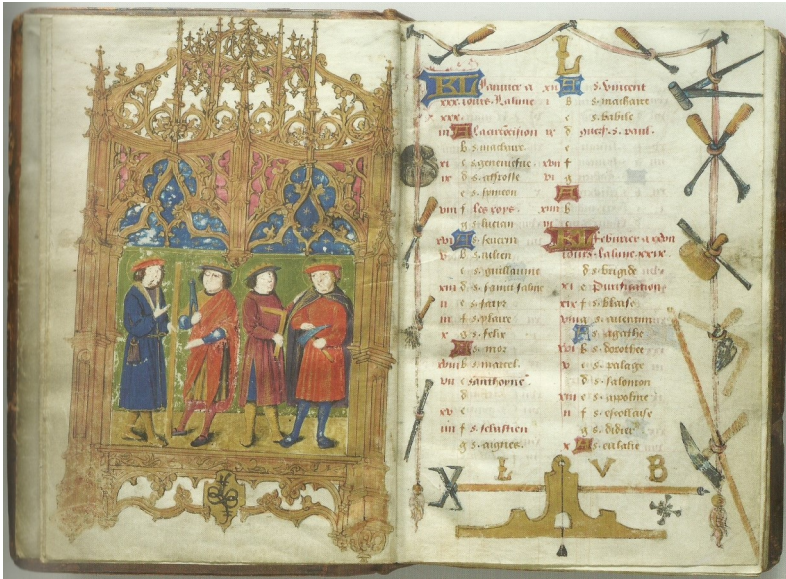 L
KL Januier a
xxx. iours. La lune
xxx.
iii A la
b s. machaire
xi c s. geneuiefue
ix d s.
e s. symeon
viii f les roys.
g s. lucian
xvi A s. seuerin
v b s. iulien
c s. guillaume
xiii d s.
ii e s. satir
f s. ylaire
x g s. felix
A s. mor
xviii b s. marcel.
vii c s anthoyne
d
xv e
iiii f s. sebastien
g s. aignes
xii A s. vincent
b s. machaire
c s. babile
ix d s. paul.
e
xvii f
vi g
A
xiiii b
KL feburier a xxviii
iours. la lune. xxix.
d s. brigide
xi e Purification
xix f s. blaise
viii g s. auentin
A s. agathe
xvi b s. dorothee
v c s. palage
d s. salomon
xiii e s. appoline
ii f s. escollaisse
g s. didier
x A s. eulalie
X L V B